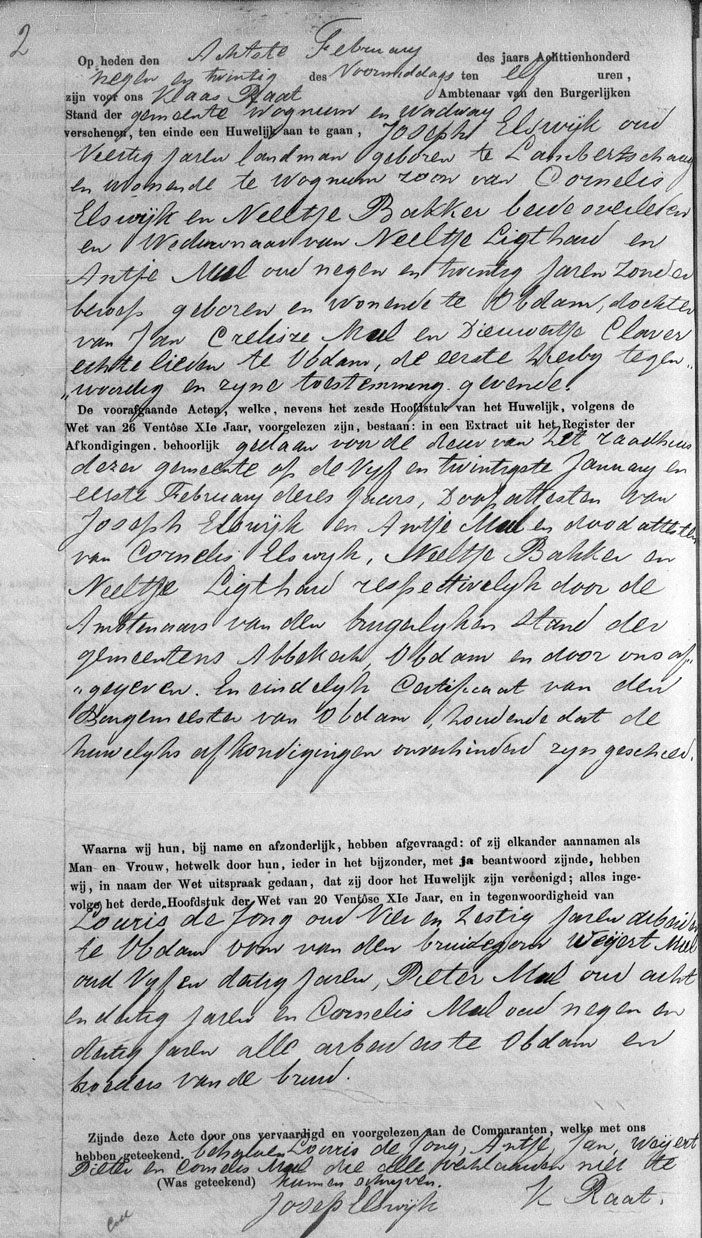 2
Op heden den Achtste February des jaars Achttienhonderd
negen en twintig des Voormiddags ten elf uren,
zijn voor ons Klaas Raat Ambtenaar van den Burgerlijken
Stand der gemeente Wognum en Wadway
verschenen, ten einde een Huwelijk aan te gaan, Joseph Elswijk oud
Veertig jaren landman geboren te Lambertschaag
en wonende te Wognum zoon van Cornelis
Elswijk en Neeltje Bakker beide overleden
en Weduwnaar van Neeltje Ligthard en
Antje Mul oud negen en twintig jaren Zonder
beroep geboren en wonende te Obdam, dochter
van Jan Crelisze Mul en Dieuwertje Claver
echtelieden te Obdam, de eerste hierby tegen„
„woordig en zyne toestemming gevende.
De voorafgaande Acten, welke, nevens het zesde Hoofdstuk van het Huwelijk, volgens de
Wet van 26 Ventôse XIe Jaar, voorgelezen zijn, bestaan: in een Extract uit het Register der
Afkondigingen, behoorlijk gedaan voor de deur van het raadhuis
dezer gemeente op de Vyf en twintigste January en
eerste February dezes Jaars, Doop attesten van
Joseph Elswijk en Antje Mul en dood attesten
van Cornelis Elswyk, Neeltje Bakker en
Neeltje Ligthard respectivelyk door de
Ambtenaars van den burgerlyken Stand der
gemeentens Abbekerk, Obdam en door ons af„
„gegeven. En eindelyk Certificaat van den
Burgemeester van Obdam, houdende dat de
huwelyks afkondigingen onverhinderd zyn geschied.
Waarna wij hun, bij name en afzonderlijk, hebben afgevraagd: of zij elkander aannamen als
Man en Vrouw, hetwelk door hun, ieder in het bijzonder, met ja beantwoord zijnde, hebben
wij, in naam der Wet uitspraak gedaan, dat zij door het Huwelijk zijn vereenigd; alles inge-
volge het derde Hoofdstuk der Wet van 20 Ventôse XIe Jaar, en in tegenwoordigheid van
Louris de Jong oud Vier en Zestig jaren arbeider
te Obdam oom van den bruidegom Weijert Mul
oud Vyf en dertig jaren, Pieter Mul oud acht
en dertig jaren en Cornelis Mul oud negen en
dertig jaren alle arbeiders te Obdam en
broeders van de bruid.
Zijnde deze Acte door ons vervaardigd en voorgelezen aan de Comparanten, welke met ons
hebben geteekend, behalven Louris de Jong, Antje, Jan, Weijert
Pieter en Cornelis Mul die alle verklaarden niet te
(Was geteekend) kunnen schryven.
Josep Elswijk K Raat.